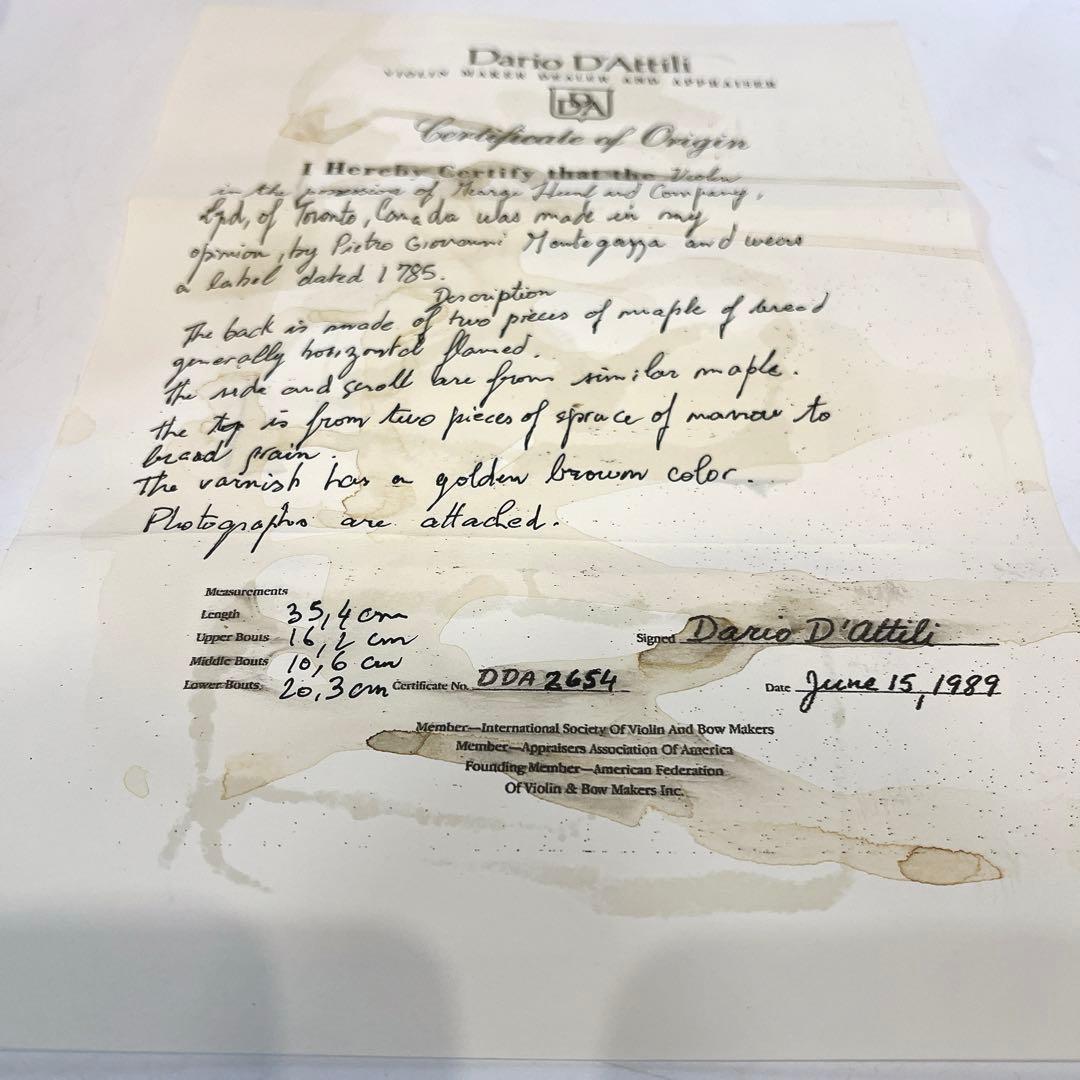 Dario D'Attili
VIOLIN MAKER DEALER AND APPRAISER
DDA
Certificate of Origin
I Hereby Certify that the Violin
in the possession of George Heinl and Company,
Ltd, of Toronto, Canada was made in my
opinion, by Pietro Giovanni Mantegazza and wears
a label dated 1785.
Description
The back is made of two pieces of maple of broad
generally horizontal flamed.
The side and scroll are from similar maple.
The top is from two pieces of spruce of narrow to
broad grain.
The varnish has a golden brown color.
Photographs are attached.
Measurements
Length 35,4 cm
Upper Bouts 16,2 cm
Middle Bouts 10,6 cm
Lower Bouts 20,3 cm
Certificate No. DDA 2654
Signed Dario D'Attili
Date June 15, 1989
Member—International Society Of Violin And Bow Makers
Member—Appraisers Association Of America
Founding Member—American Federation
Of Violin & Bow Makers Inc.